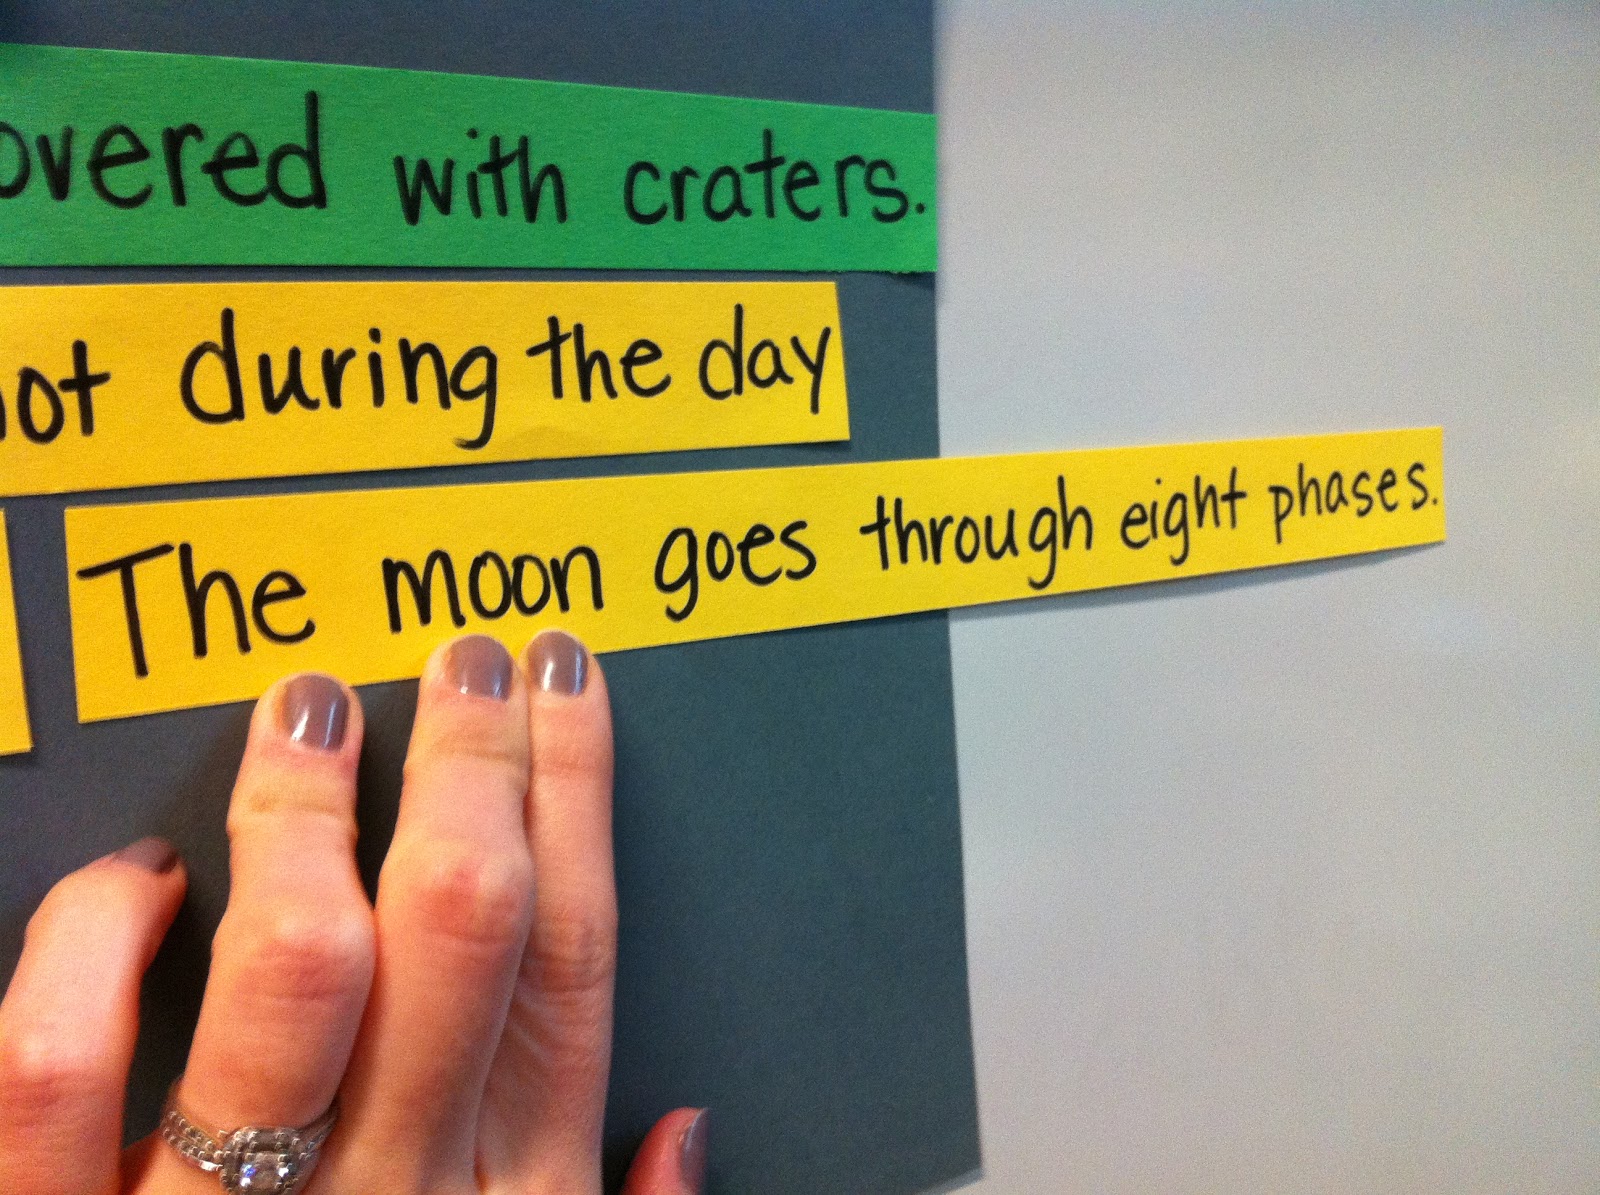 overed with craters.
ot during the day
The moon goes through eight phases.